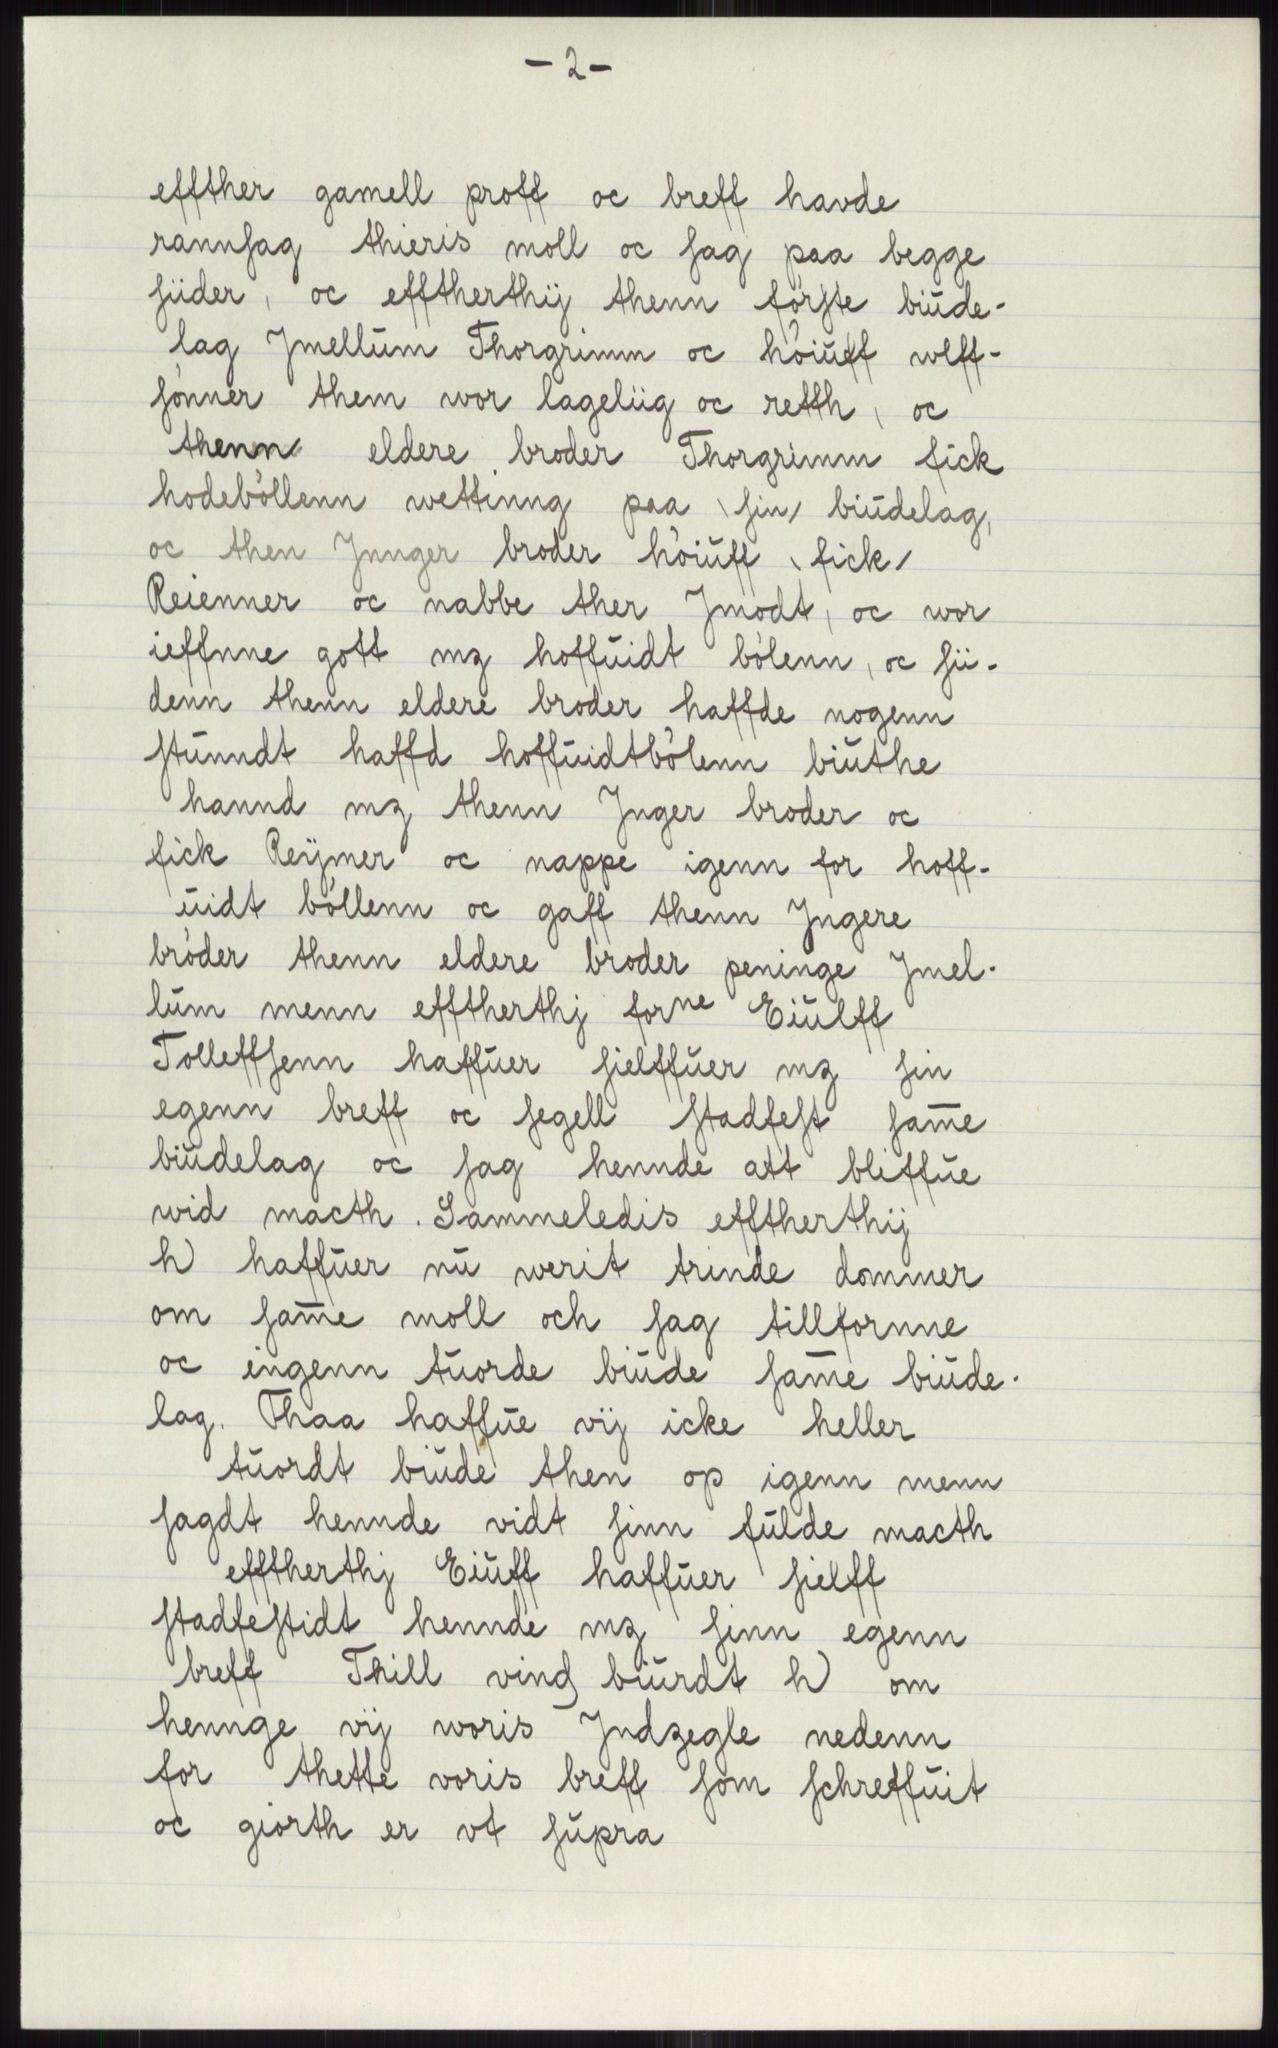 - 2 -
effther gamell proff oc breff havde
rannsag thieris moll oc sag paa begge
siider, oc efftherthij thenn første biude-
lag Jmellum Thorgrimm oc høiulff wlff-
sønner them wor lageliig oc retth, oc
thenn eldere broder Thorgrimm fick
hodebøllenn wettinng paa \sin/ biudelag,
oc then Jnnger broder høiuff \fick/
Reienner oc nabbe ther Jmodt, oc wor
ieffnne gott mz hoffuidt bølenn, oc sii-
denn thenn eldere broder haffde nogenn
stunndt haffd hoffuidtbølenn biuthe
hannd mz thenn Jnger broder oc
fick Reijmer oc nappe igenn for hoff-
uidt bøllenn oc gaff thenn Jngere
brøder thenn eldere broder peninge Jmel-
lum menn efftherthj forne Eiulff
Tolleffsenn haffuer sielffuer mz sin
egenn breff oc segell stadfest same
biudelag oc sag hennde att bliffue
wid macth. Sammeledis efftherthij
h) haffuer nu werit trinde dommer
om same moll och sag tillfornne
oc eingenn tuorde biude same biude-
lag. Thaa haffue vij icke heller
tuordt biude then op igenn menn
sagdt hennde vidt sinn fulde macth
efftherthj Eiuff haffuer sielff
stadfestidt hennde mz sinn egenn
breff Thill vind biurdt h) om
hennge vij woris Jndzegle nedenn
for thette voris breff som schreffuit
oc giorth er vt supra